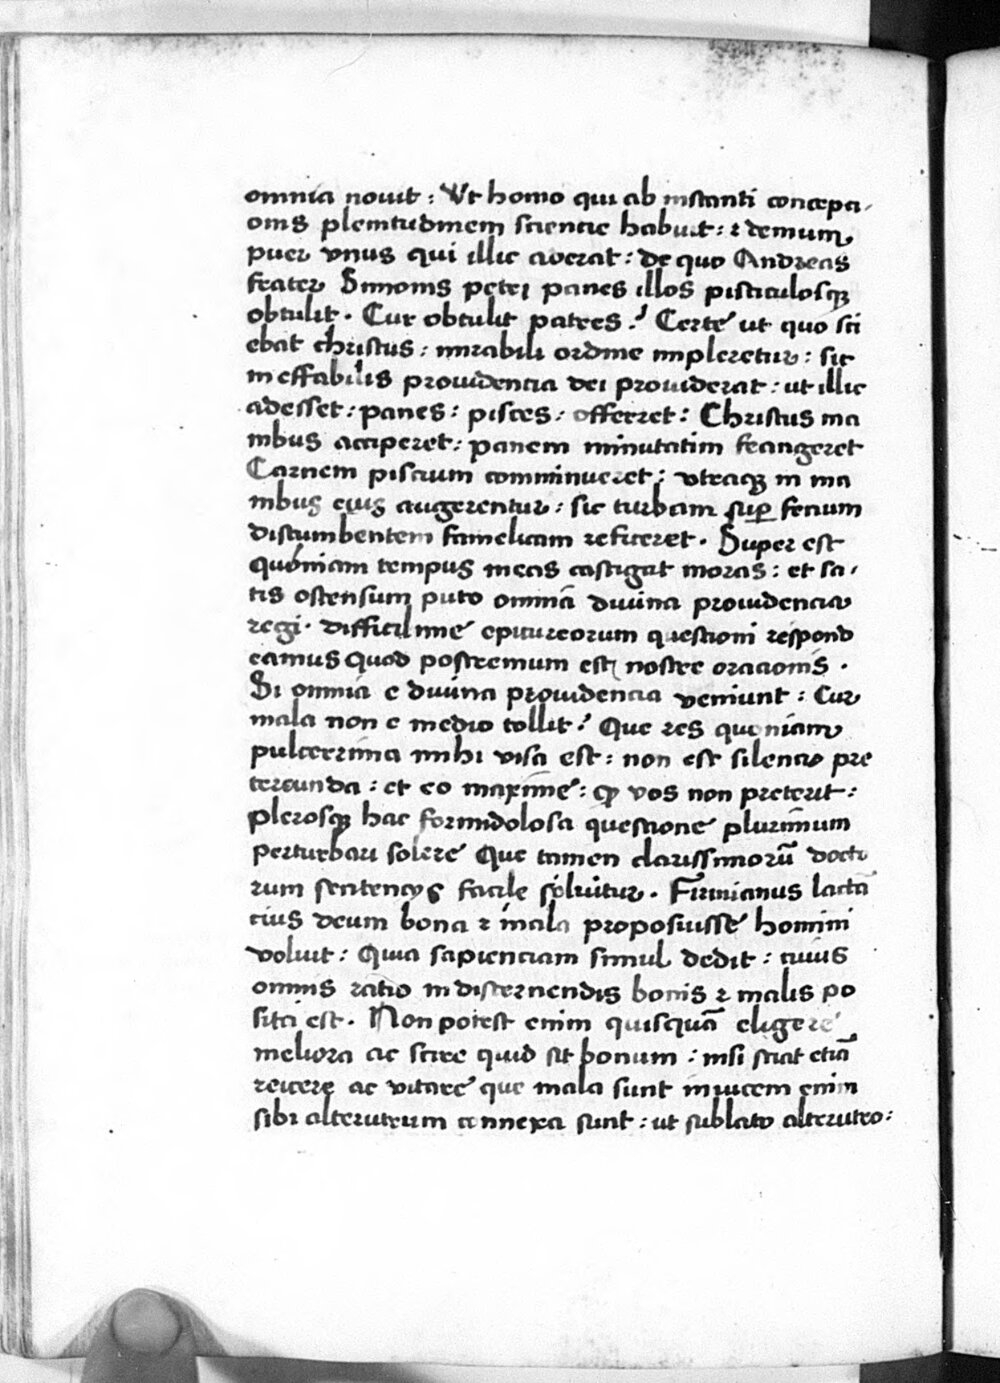 omnia nouit : Vt homo qui ab instanti concepci-
onis plenitudinem sciencie habuit : & demum
puer vnus qui illic aderat : de quo Andreas
frater Simonis petri panes illos pisciculosqꝫ
obtulit . Cur obtulit patres ? Certe ut quo sci
ebat christus : mirabili ordine impleretur : sic
ineffabilis prouidencia dei prouiderat : ut illic
adesset : panes : pisces : offerret : Christus ma
nibus acciperet : panem minutatim frangeret
Carnem piscium comminueret : vtraqꝫ in ma
nibus eius augerentur : sic turbam suꝑ fenum
discumbentem famelicam reficeret . Super est
quoniam tempus meas castigat moras : et sa-
tis ostensum puto omniā diuina prouidencia
regi . difficilime epicureorum questioni respond
eamus quod postremum est nostre oracionis .
Si omnia e diuina prouidencia veniunt : Cur
mala non e medio tollit ? Que res quoniam
pulcerrima mihi visa est : non est silencio pre
tereunda : et eo maxime : ꝙ vos non preterit :
plerosqꝫ hac formidolosa questione plurimum
perturbari solere Que tamen clarissimorū docto
rum sentencijs facile soluitur . Firmianus lactā
cius deum bona & mala proposuisse homini
voluit : Quia sapienciam simul dedit : cuius
omnis ratio in discernendis bonis & malis po
sita est . Non potest enim quisquā eligere
meliora ac scire quid sit bonum : nisi sciat etiā
reicere ac vitare que mala sunt inuicem enim
sibi alterutrum connexa sunt : ut sublato alterutro :